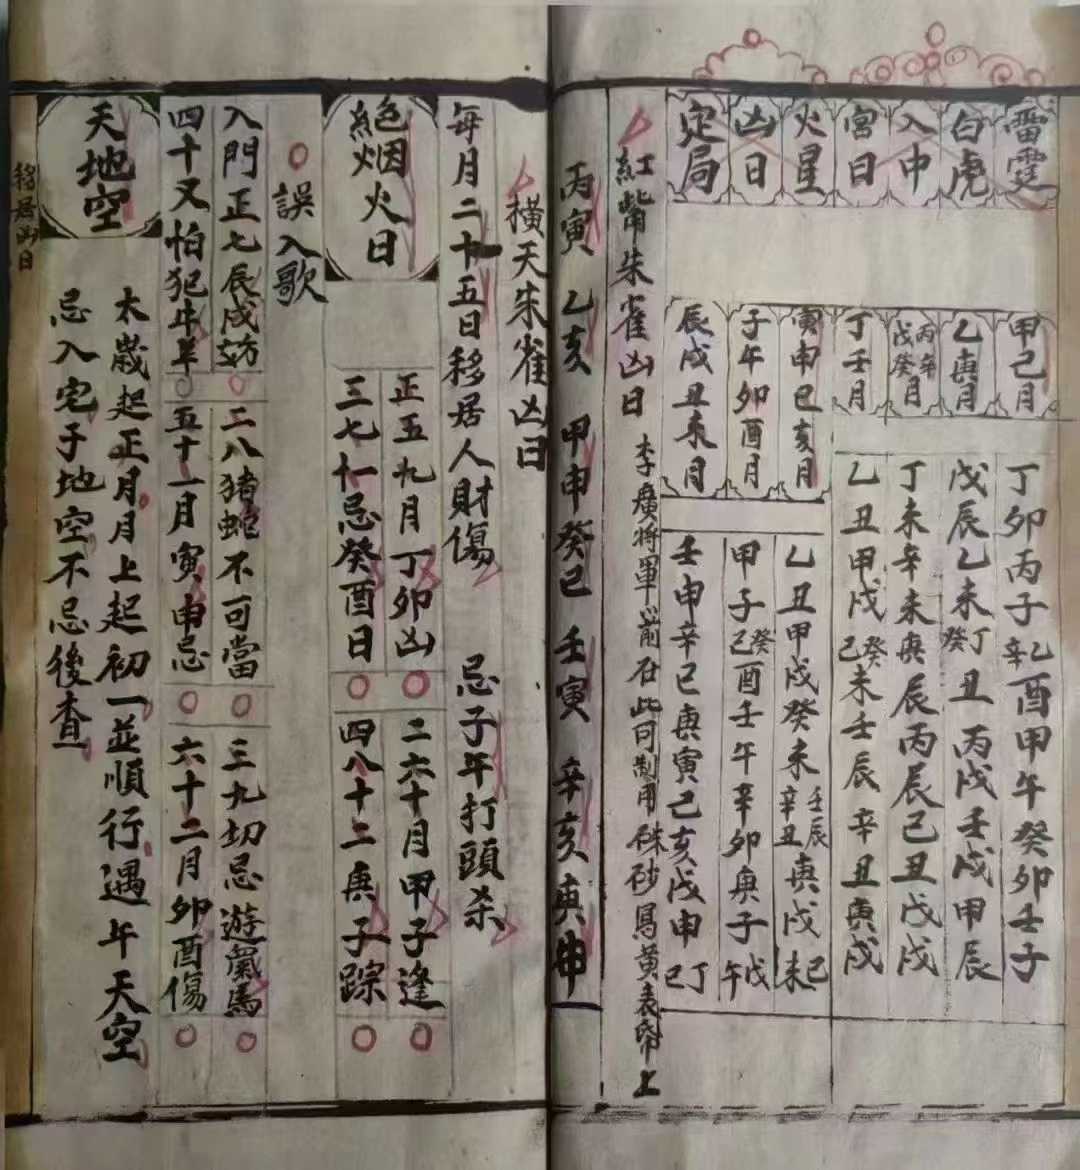 雷霆
白虎
入中
宮日
火星
凶日
定局
甲己月
乙庚月
丙辛戊癸月
丁壬月
丁卯丙子乙酉辛甲午癸卯壬子
戊辰乙未丁丑癸丙戌壬戌甲辰
丁未辛未庚辰丙辰己丑戊戌
乙丑甲戌癸未己壬辰辛丑庚戌
寅申巳亥月
子午卯酉月
辰戌丑未月
乙丑甲戌癸未壬辰辛丑庚戌己未
甲子癸酉己壬午辛卯庚子戊午
壬申辛巳庚寅己亥戊申丁巳
紅嘴朱雀凶日
李廣將軍前在此可制用硃砂寫黃表帋上
丙寅 乙亥 甲申 癸巳 壬寅 辛亥 庚申
橫天朱雀凶日
每月二十五日移居人財傷 忌子午打頭杀
絕烟火日
正五九月丁卯凶〇二六十月甲子逢〇
三七十一忌癸酉日〇四八十二庚子踪〇
〇誤入歌
入門正七辰戌方〇二八猪蛇不可當〇三九切忌遊鼠馬〇
四十又怕犯牛羊〇五十一月寅申忌〇六十二月卯酉傷〇
天地空
太歲起正月月上起初一並順行遇午天空
忌入宅子地空不忌後查
移居凶日